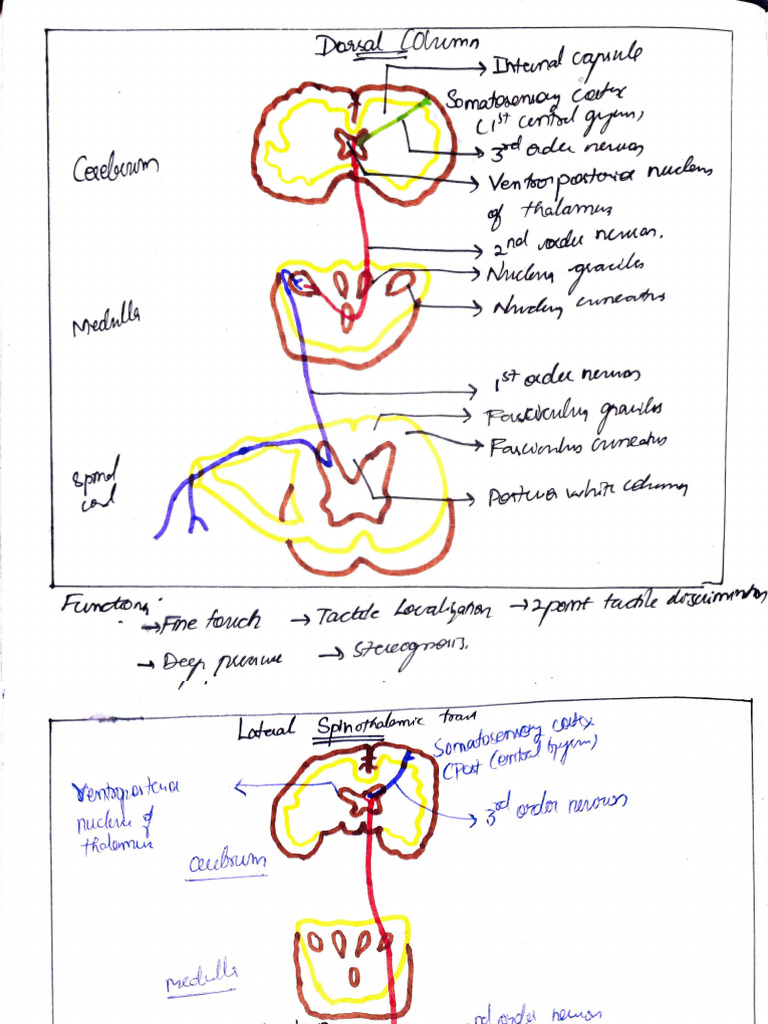 Dorsal Column
Internal capsule
Somatosensory cortex
(1st central gyrus)
3rd order neuron
Cerebrum
Ventroposterior nucleus
of thalamus
2nd order neuron.
Nucleus gracilis
Nucleus cuneatus
Medulla
1st order neuron
Fasciculus gracilis
Fasciculus cuneatus
Spinal
cord
Posterior white column
Functions:
→ Fine touch → Tactile Localization → 2 point tactile discrimination
→ Deep pressure → Stereognosis.
Lateral Spinothalamic tract
Somatosensory cortex
(Post central gyrus)
Ventroposterior
nucleus of
thalamus
3rd order neuron
Cerebrum
Medulla
2nd order neuron